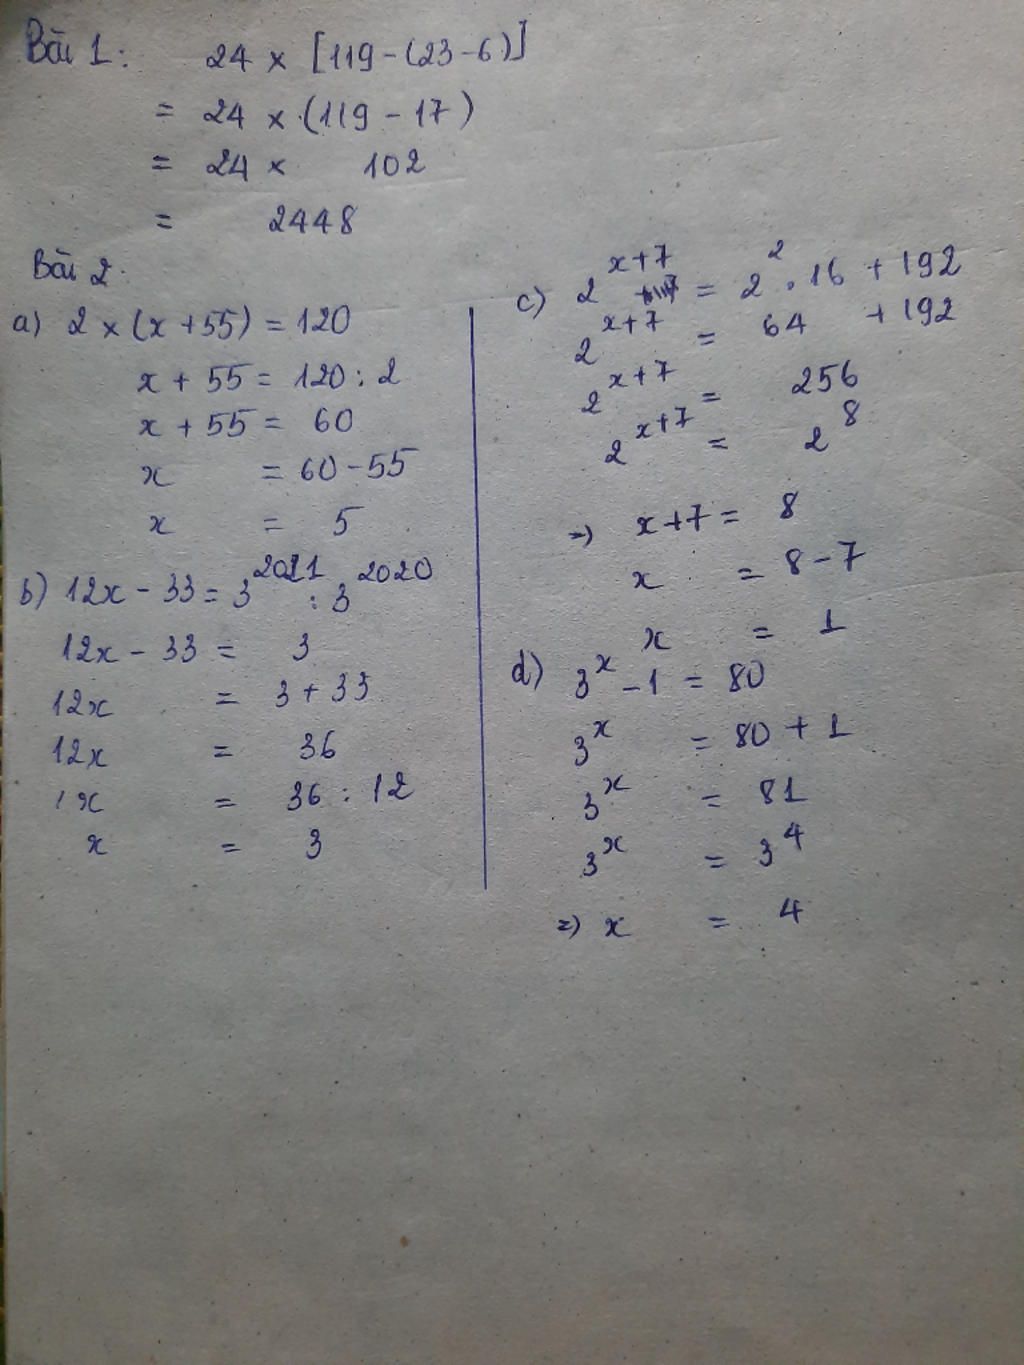 Bài 1: 24 x [119 - (23 - 6)]
= 24 x (119 - 17)
= 24 x 102
= 2448
Bài 2.
a) 2 x (x + 55) = 120
x + 55 = 120 : 2
x + 55 = 60
x = 60 - 55
x = 5
b) 12x - 33 = 3^2021 : 3^2020
12x - 33 = 3
12x = 3 + 33
12x = 36
x = 36 : 12
x = 3
c) 2^x+7 = 2^2 . 16 + 192
2^x+7 = 64 + 192
2^x+7 = 256
2^x+7 = 2^8
=) x + 7 = 8
x = 8 - 7
x = 1
d) 3^x - 1 = 80
3^x = 80 + 1
3^x = 81
3^x = 3^4
=) x = 4